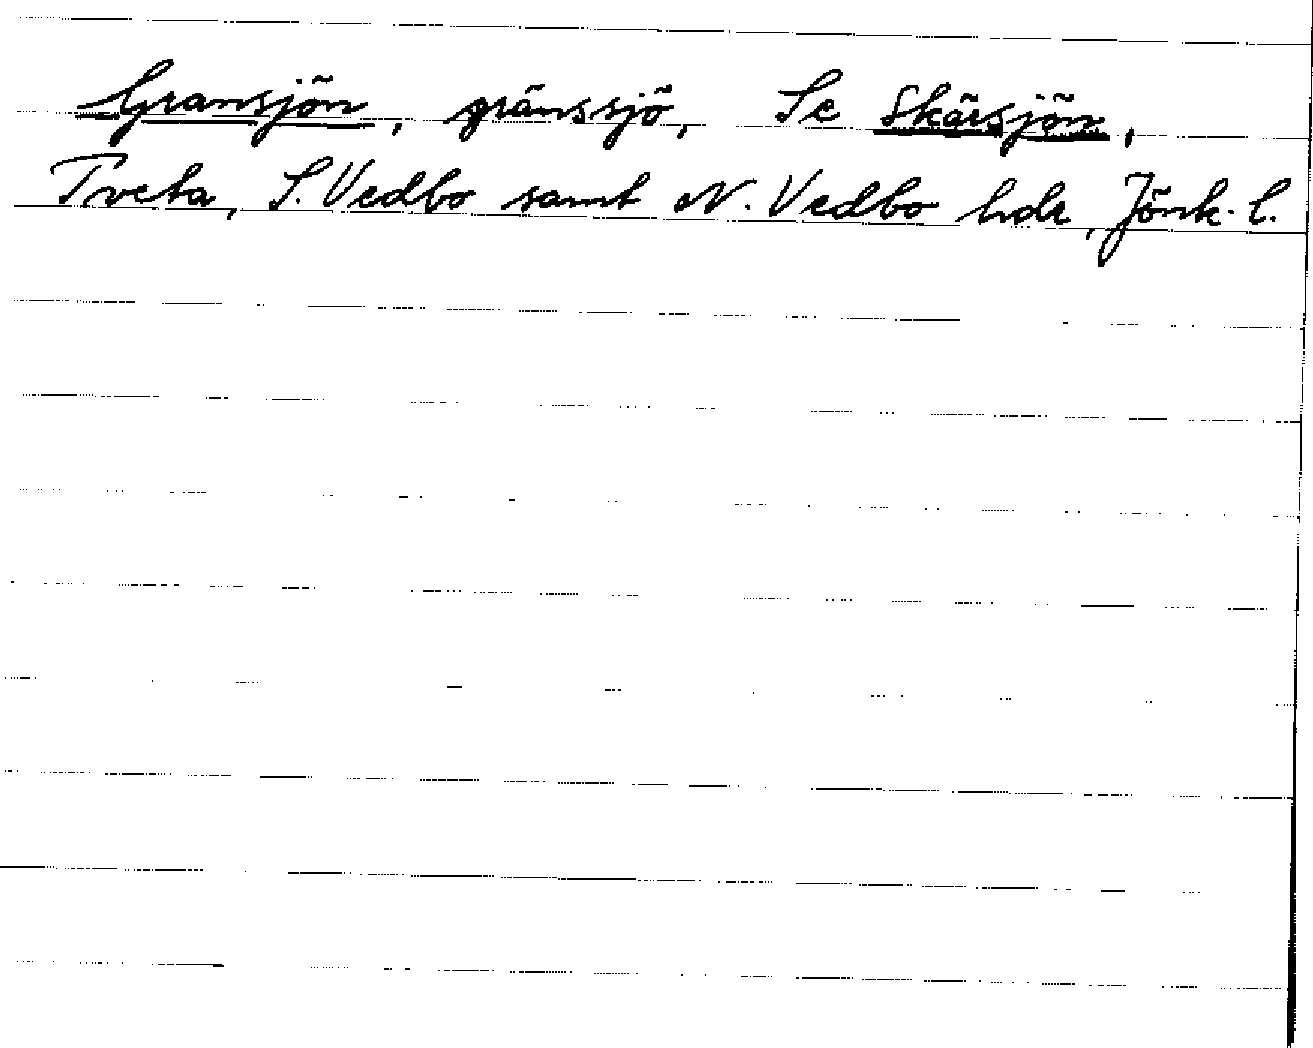 Gransjön, gränssjö, Se Skärsjön,
Tveta, S. Vedbo samt N. Vedbo hdr, Jönk. l.